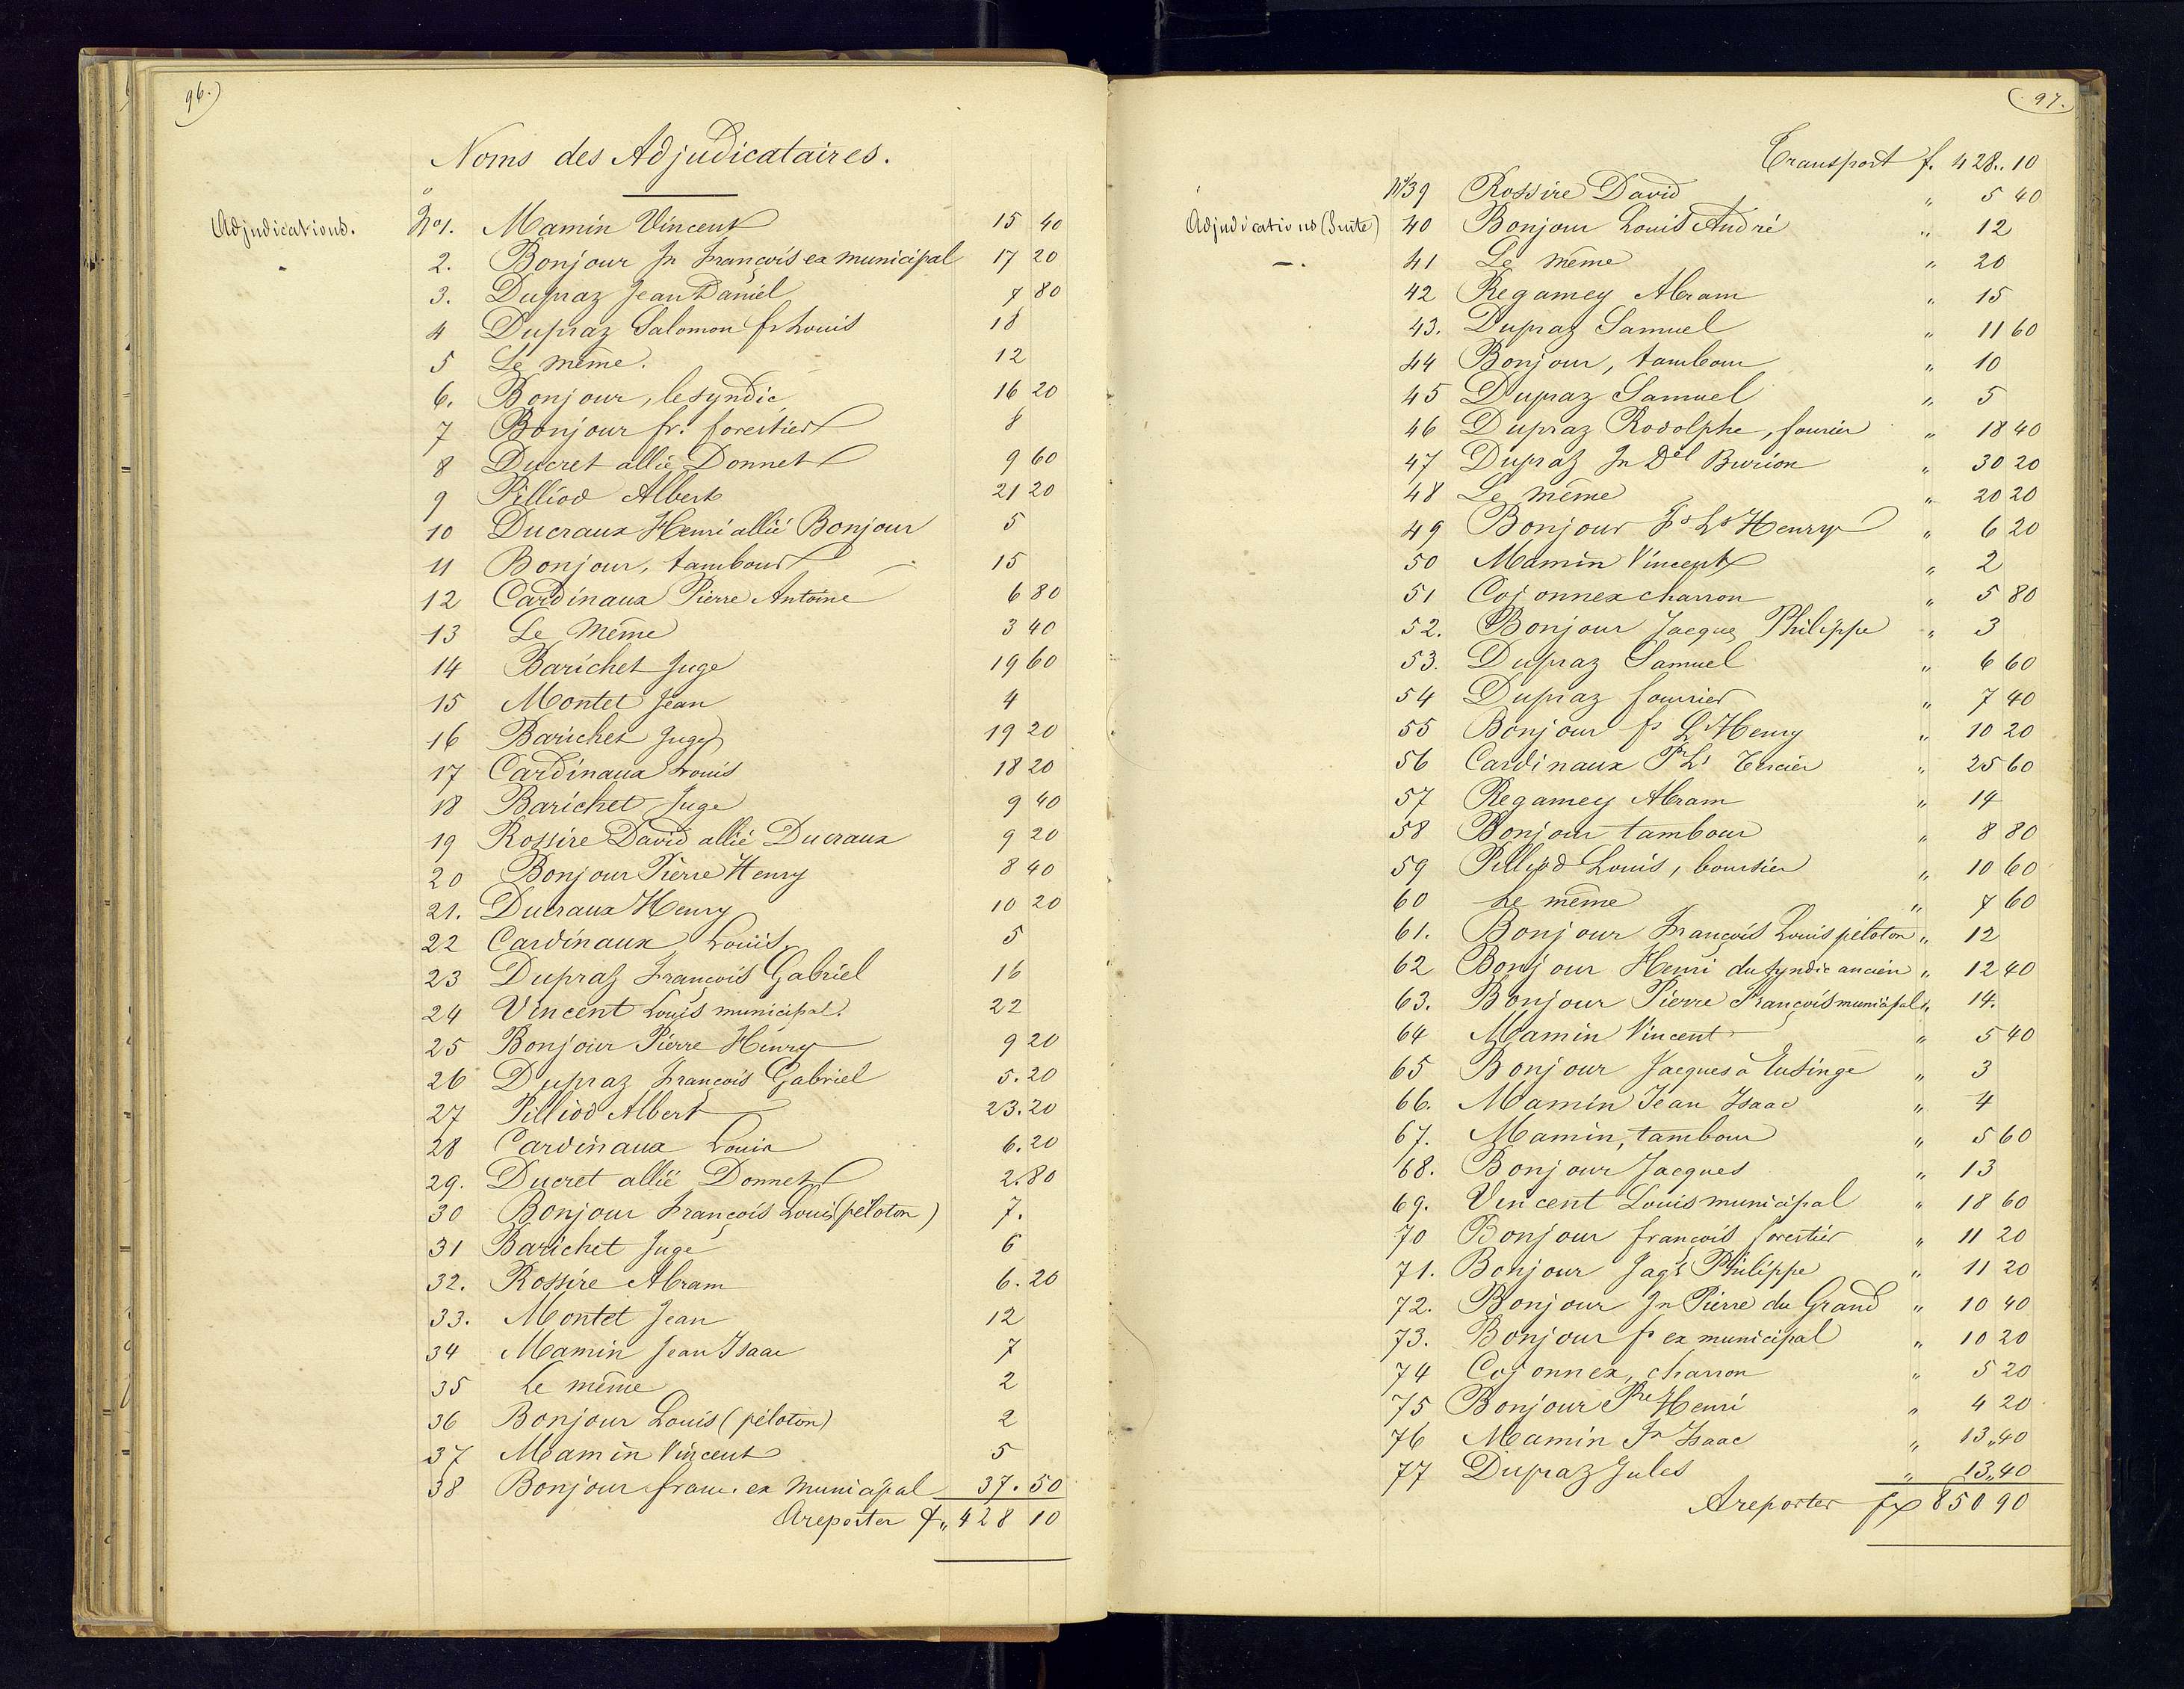 96.)
Noms des Adjudicataires.
Adjudications.
No 1. Mamin Vincent 15 40
2. Bonjour Jn François ex municipal 17 20
3. Dupraz Jean Daniel 7 80
4 Dupraz Salomon fs Louis 18
5 Le même. 12
6. Bonjour, le syndic 16 20
7 Bonjour fr. forestier 8
8 Ducret allié Donnet 9 60
9 Pilliod Albert 21 20
10 Ducraux Henri allié Bonjour 5
11 Bonjour, tambour 15
12 Cardinaux Pierre Antoine 6 80
13 Le Même 3 40
14 Barichet Juge 19 60
15 Montet Jean 4
16 Barichet Juge 19 20
17 Cardinaux Louis 18 20
18 Barichet Juge 9 40
19 Rossire David allié Ducraux 9 20
20 Bonjour Pierre Henry 8 40
21. Ducraux Henry 10 20
22 Cardinaux Louis 5
23 Dupraz François Gabriel 16
24 Vincent Louis municipal. 22
25 Bonjour Pierre Henry 9 20
26 Dupraz François Gabriel 5.20
27 Pilliod Albert 23.20
28 Cardinaux Louis 6.20
29. Ducret allié Donnet 2.80
30 Bonjour François Louis (péloton) 7.
31 Barichet Juge 6
32. Rossire Abram 6.20
33. Montet Jean 12
34 Mamin Jean Isaac 7
35 Le même 2
36 Bonjour Louis (péloton) 2
37 Mamin Vincent 5
38 Bonjour franc. ex Municipal 37.50
A reporter f. 428 10
97.
Transport f. 428.. 10
No 39 Rossire David " 5 40
Adjudications (Suite)
40 Bonjour Louis André " 12
41 Le même " 20
42 Regamey Abram " 15
43. Dupraz Samuel " 11 60
44 Bonjour, tambour " 10
45 Dupraz Samuel " 5
46 Dupraz Rodolphe, fourier " 18 40
47 Dupraz Jn Del Burion " 30 20
48 Le même " 20 20
49 Bonjour Fs Ls Henry " 6 20
50 Mamin Vincent " 2
51 Cojonnex charron " 5 80
52. Bonjour Jacques Philippe " 3
53. Dupraz Samuel " 6 60
54 Dupraz fourrier " 7 40
55 Bonjour fs Ls Henry " 10 20
56 Cardinaux Pr Ls Tercier " 25 60
57 Regamey Abram " 14
58 Bonjour tambour " 8 80
59 Pilliod Louis, boursier " 10 60
60 Le même " 7 60
61. Bonjour François Louis péloton " 12
62 Bonjour Henri du syndic ancien " 12 40
63. Bonjour Pierre François municipal " 14.
64 Mamin Vincent " 5 40
65 Bonjour Jacques à Eusinge " 3
66. Mamin Jean Isaac " 4
67. Mamin, tambour " 5 60
68. Bonjour Jacques " 13
69. Vincent Louis municipal " 18 60
70 Bonjour françois forestier " 11 20
71. Bonjour Jaqs Philippe " 11 20
72. Bonjour Jn Pierre du Grand " 10 40
73. Bonjour fs ex municipal " 10 20
74 Cojonnex, charron " 5 20
75 Bonjour Pre Henri " 4 20
76 Mamin Jn Isaac " 13„40
77 Dupraz Jules " 13„40
A reporter fr 850 90